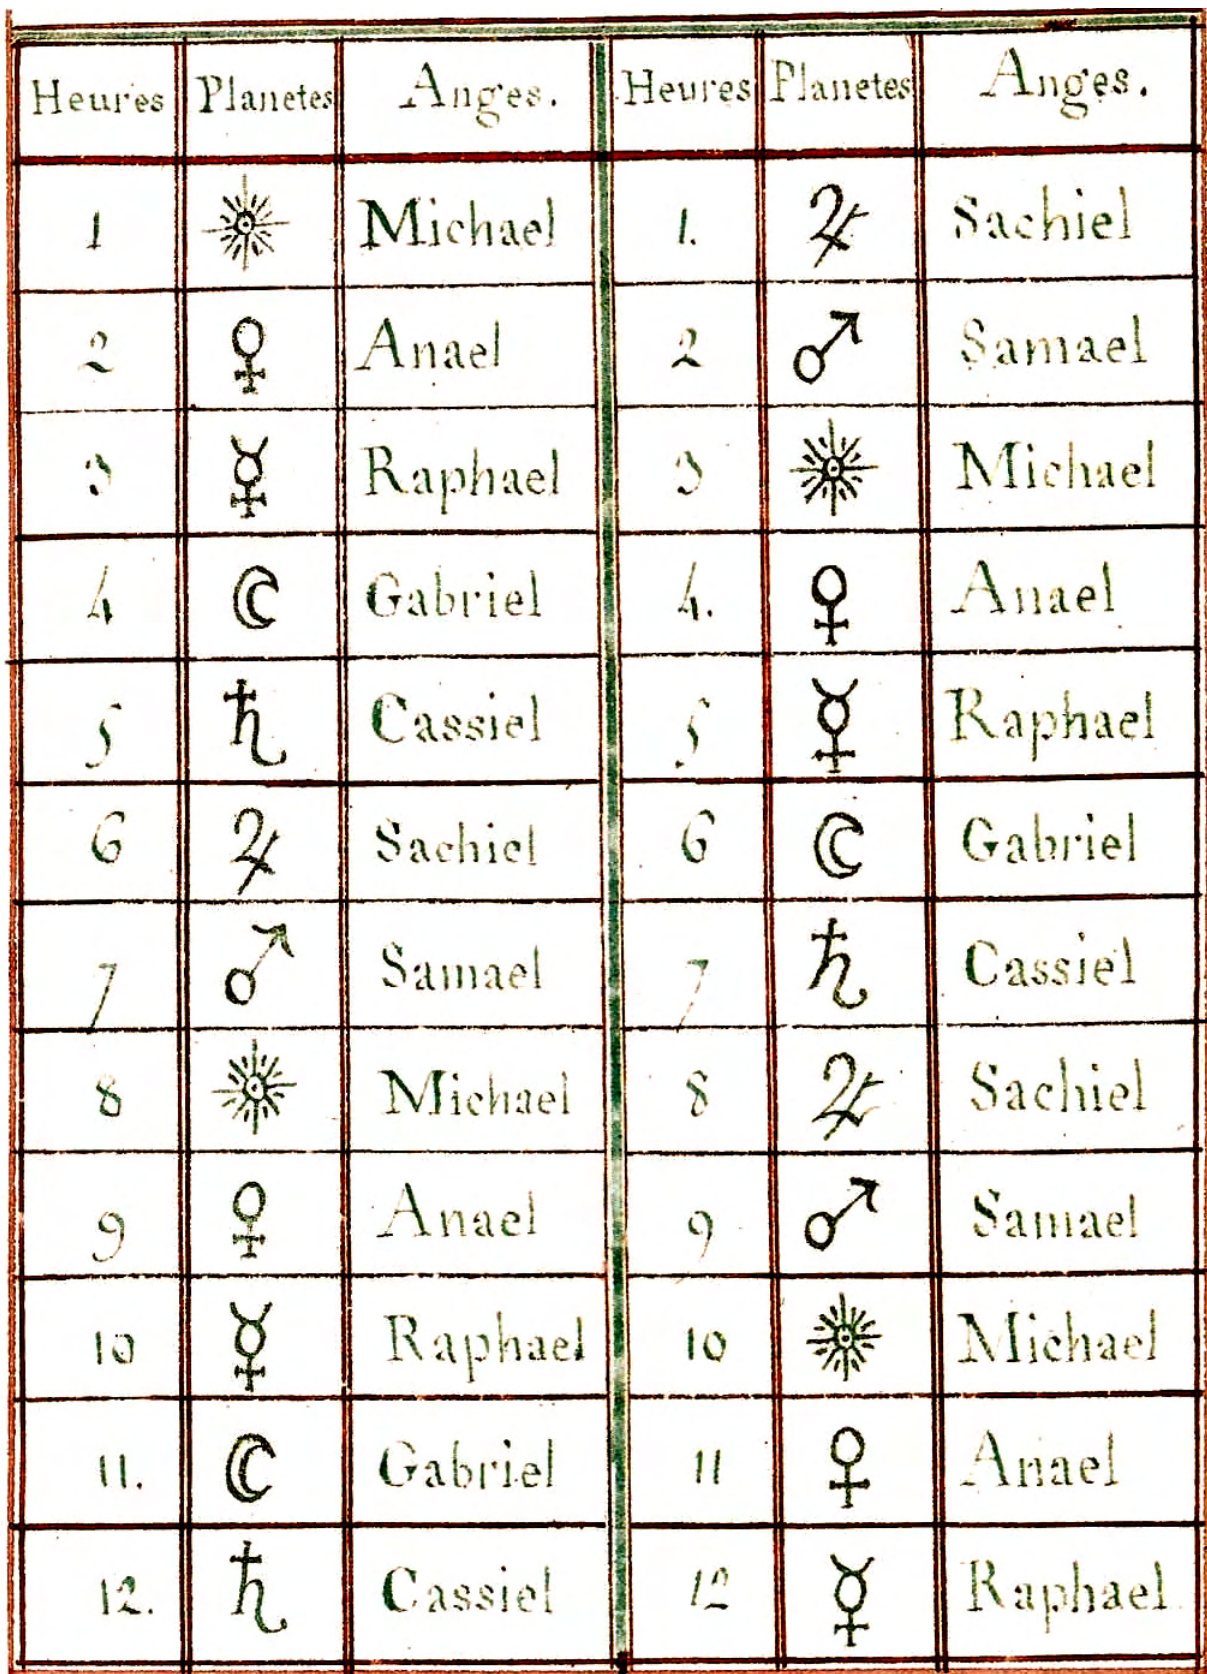 Heures Planetes Anges. Heures Planetes Anges.
1 ☉ Michael 1. ♃ Sachiel
2 ♀ Anael 2 ♂ Samael
3 ☿ Raphael 3 ☉ Michael
4 ☾ Gabriel 4. ♀ Anael
5 ♄ Cassiel 5 ☿ Raphael
6 ♃ Sachiel 6 ☾ Gabriel
7 ♂ Samael 7 ♄ Cassiel
8 ☉ Michael 8 ♃ Sachiel
9 ♀ Anael 9 ♂ Samael
10 ☿ Raphael 10 ☉ Michael
11. ☾ Gabriel 11 ♀ Anael
12. ♄ Cassiel 12 ☿ Raphael